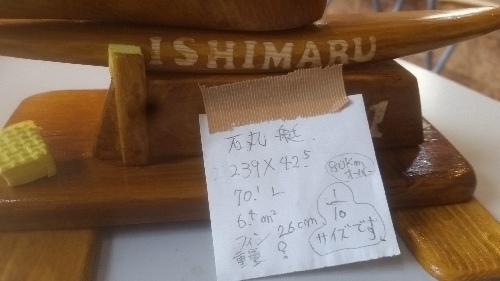 ISHIMARU
石丸 艇.
239×42.5
70.1 L
6.4 m²
フィン 26cm
重量 ?
80Km
オーバー
1/10
サイズです